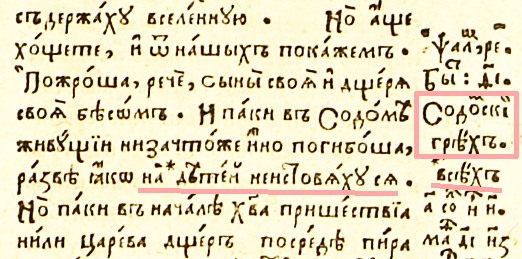 съдержа́ху вселе́нную . Но̀ а҆́ще
хо́щете, и҆ ѿ на́шыхъ пока́жемъ .
Пожро́ша, рече̑, сыны̀ своѧ̑ и҆ дщерѧ
своѧ̑ бѣсо́мъ . И҆ па́ки въ Содо́мѣ
живу́щїи низачто́же и҆́но погибо́ша,
ра́звѣ ꙗ҆́кѡ на̀*дѣте́й неистовѧ́хусѧ .
Но̀ па́ки въ нача́лѣ хв҃а прише́ствїа
ни́ли царе́ва дще́рь посредѣ̀ пи́ра
Ѱал҃, ре҃.
Бы҃: д҃і.
Содо́ⷨскї
грѣ́хъ.
*всѣ́хъ